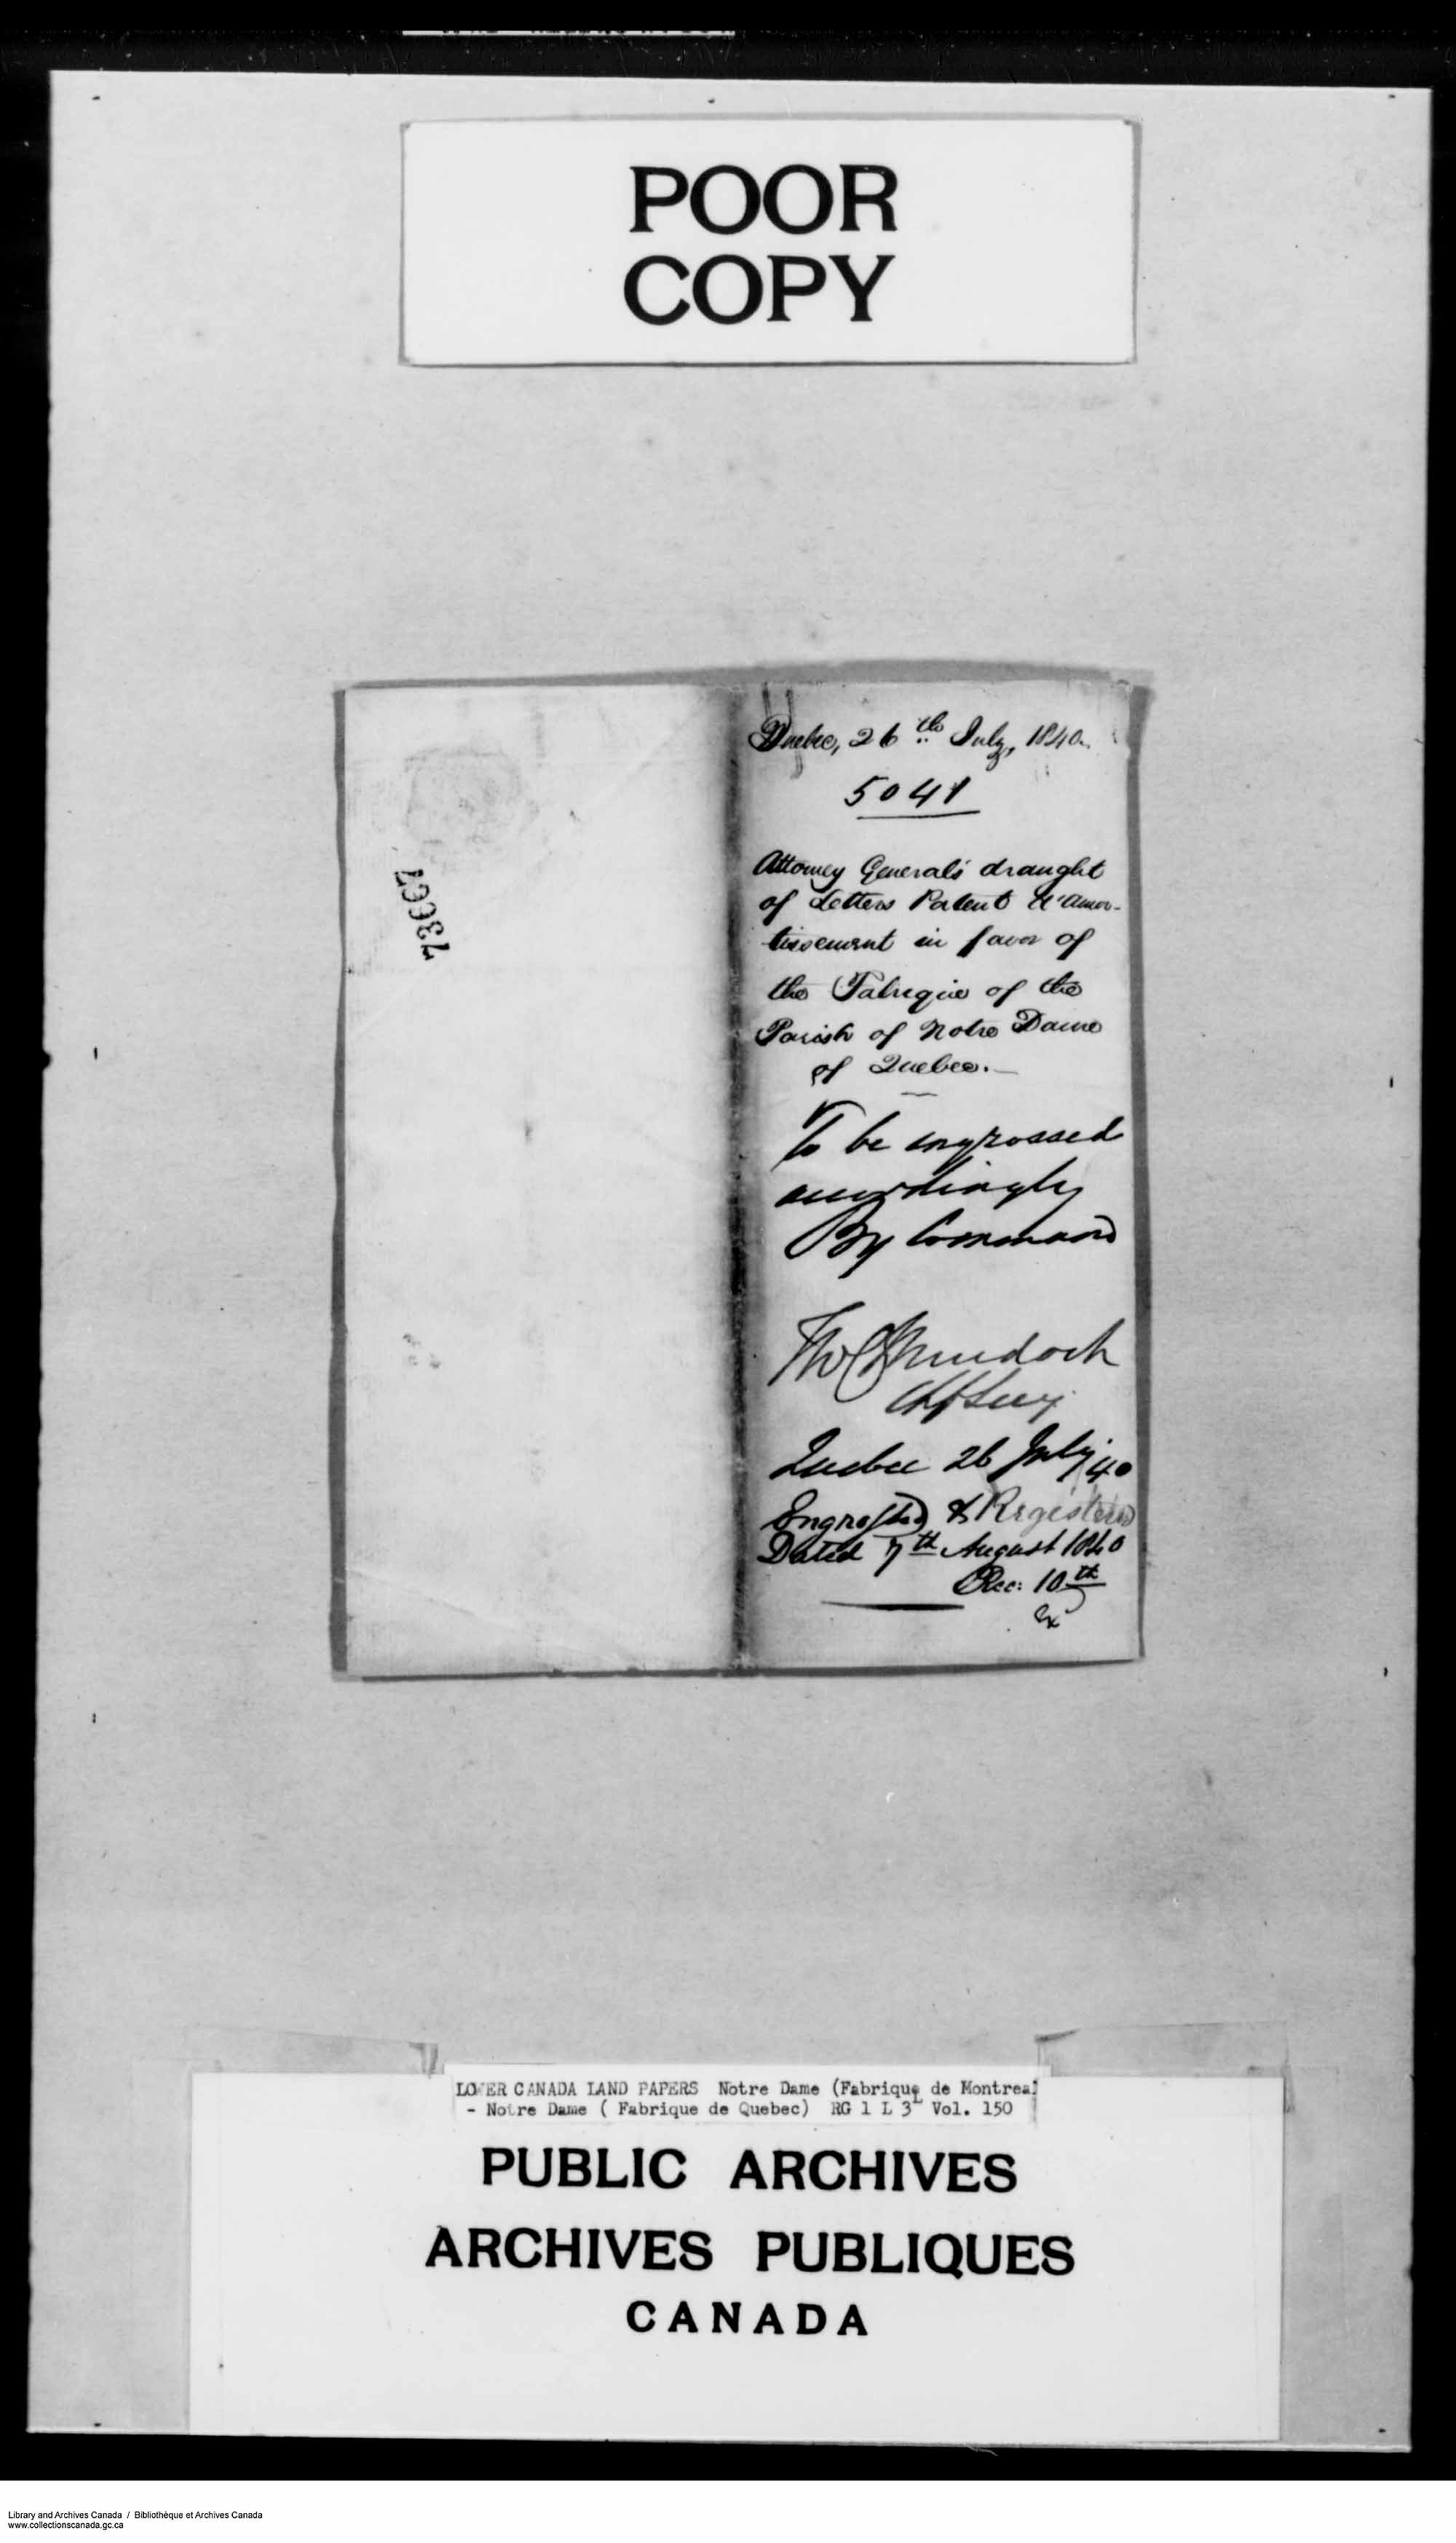 POOR
COPY
Quebec, 26th July, 1840.
5041
Attorney General's draught
of Letters Patent d'Amor-
tissement in favor of
the Fabrique of the
Parish of Notre Dame
of Quebec.—
To be engrossed
accordingly
By Command
Murdoch
Quebec 26 July 40
Engrossed & Registered
Dated 7th August 1840
Rec: 10th
LOWER CANADA LAND PAPERS Notre Dame (Fabrique de Montreal
- Notre Dame ( Fabrique de Quebec) RG 1 L 3L Vol. 150
PUBLIC ARCHIVES
ARCHIVES PUBLIQUES
CANADA
Library and Archives Canada / Bibliothèque et Archives Canada
www.collectionscanada.gc.ca